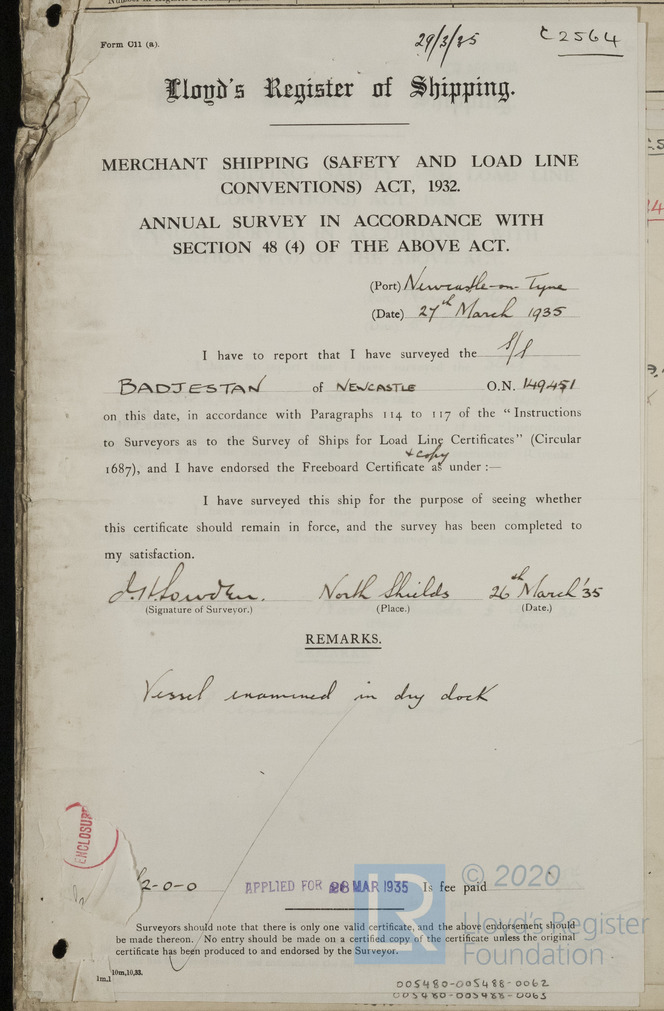 Form C11 (a).
29/3/35
C2564
Lloyd's Register of Shipping.
MERCHANT SHIPPING (SAFETY AND LOAD LINE
CONVENTIONS) ACT, 1932.
ANNUAL SURVEY IN ACCORDANCE WITH
SECTION 48 (4) OF THE ABOVE ACT.
(Port) Newcastle-on-Tyne
(Date) 27th March 1935
I have to report that I have surveyed the s/s
BADJESTAN of NEWCASTLE O.N. 149451
on this date, in accordance with Paragraphs 114 to 117 of the "Instructions
to Surveyors as to the Survey of Ships for Load Line Certificates" (Circular
+ copy
1687), and I have endorsed the Freeboard Certificate as under :—
I have surveyed this ship for the purpose of seeing whether
this certificate should remain in force, and the survey has been completed to
my satisfaction.
North Shields 26th March '35
(Signature of Surveyor.) (Place.) (Date.)
REMARKS.
Vessel examined in dry dock
ENCLOSURE
£2-0-0 APPLIED FOR 28 MAR 1935 Is fee paid
© 2020
LR
Lloyd's Register
Foundation
Surveyors should note that there is only one valid certificate, and the above endorsement should
be made thereon. No entry should be made on a certified copy of the certificate unless the original
certificate has been produced to and endorsed by the Surveyor.
1m,10m,10,33.
005480-005488-0062
005480-005488-0063